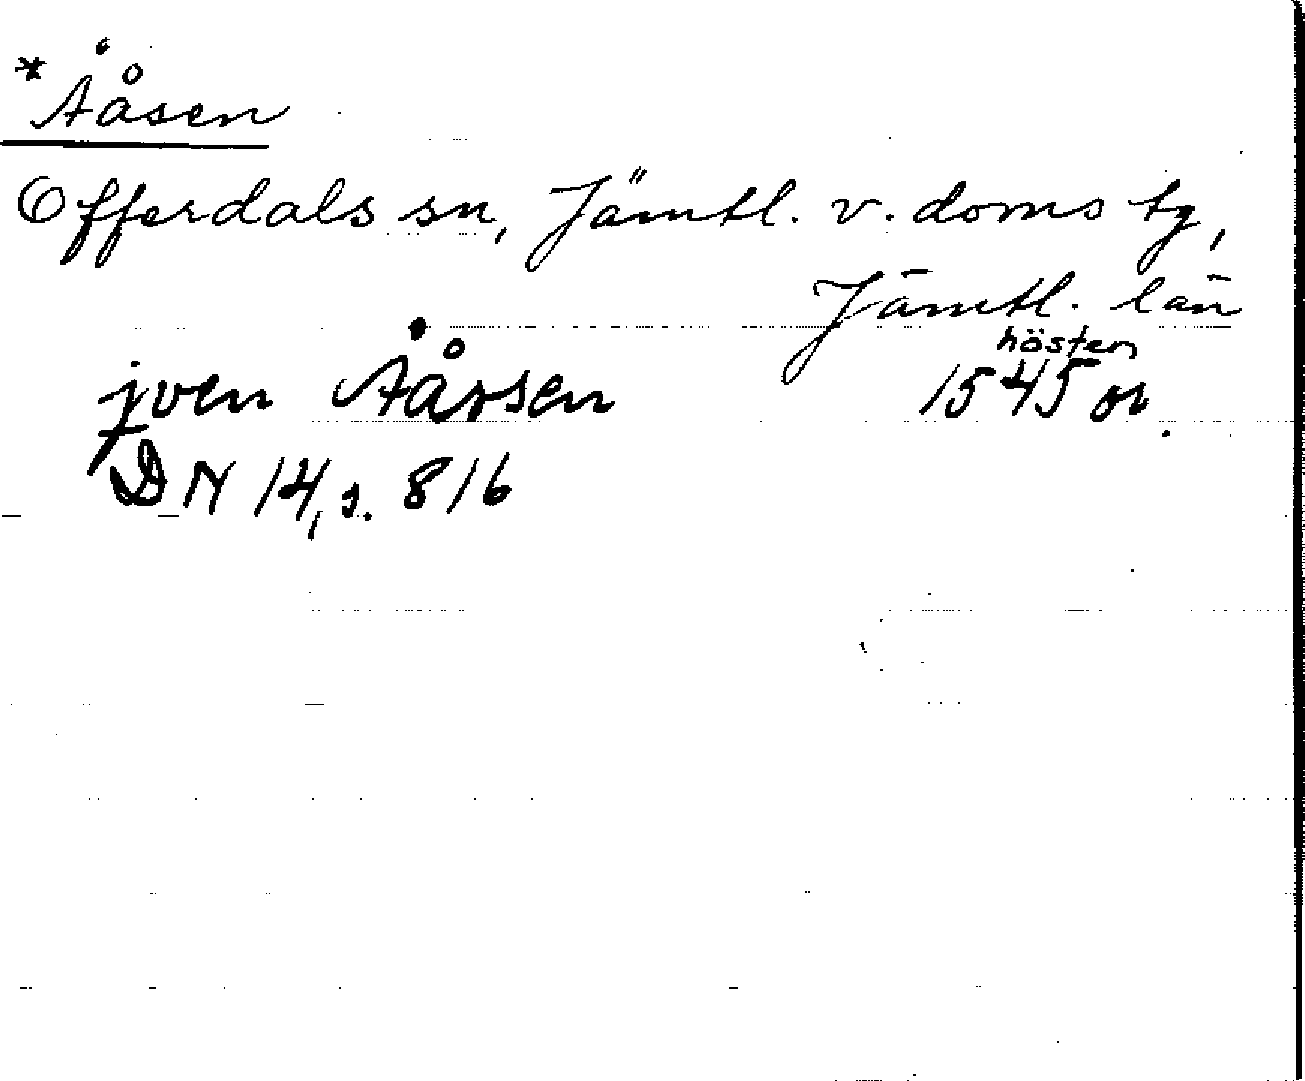 *Ååsen
Offerdals sn, Jämtl. v. doms tg,
Jämtl. län
hösten
jven Åårsen 1545 or.
DN 14, s. 816